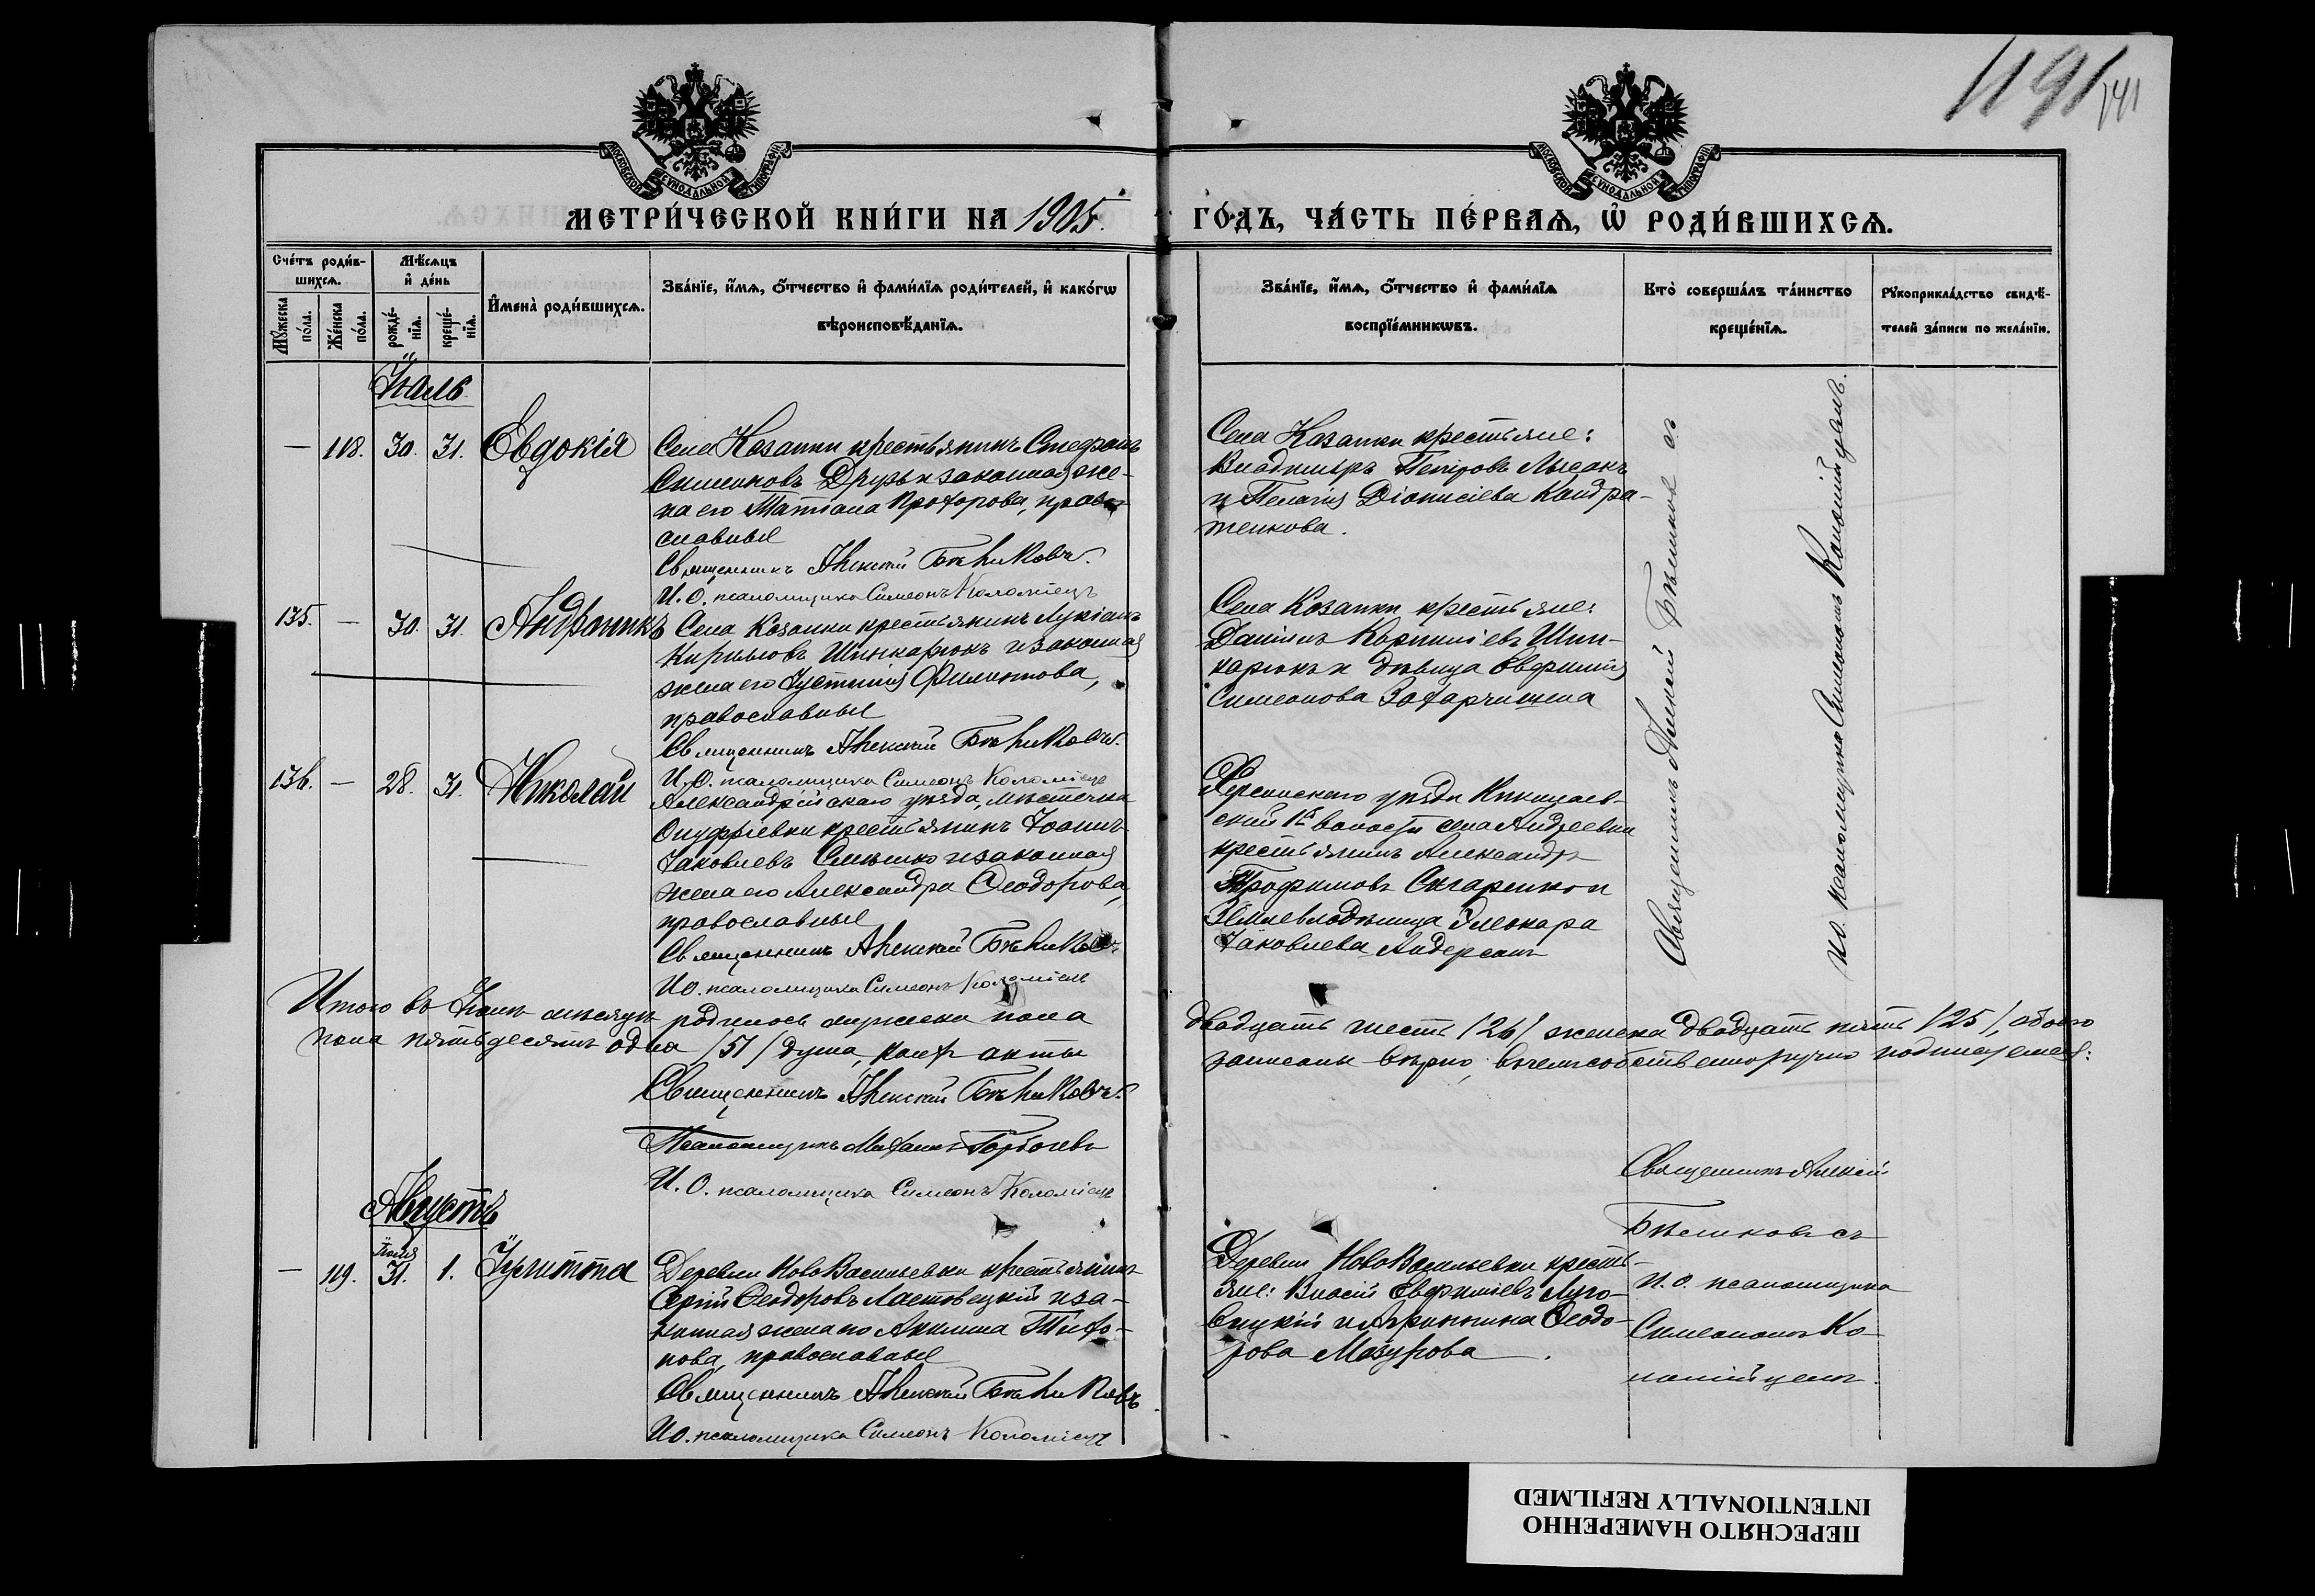 1191
141
МОСКОВСКОЙ СѴНОДАЛЬНОЙ ТИПОГРАФІИ
МОСКОВСКОЙ СѴНОДАЛЬНОЙ ТИПОГРАФІИ
МЕТРИ́ЧЕСКОЙ КНИ́ГИ НА 1905. ГО́ДЪ, ЧА́СТЬ ПЕ́РВАѦ, Ѡ҆ РОДИ́ВШИХСѦ.
Сче́тъ роди́в-
шихсѧ.
Мꙋ́жеска
по́ла.
Же́нска
по́ла.
Мѣ́сѧцъ
и҆ де́нь
рожде́-
нїѧ.
креще́-
нїѧ.
И҆мена̀ роди́вшихсѧ.
Зва́нїе, и҆́мѧ, ѻ҆́тчество и҆ фами́лїѧ роди́телей, и҆ како́гѡ
вѣроисповѣ́данїѧ.
Зва́нїе, и҆́мѧ, ѻ҆́тчество и҆ фами́лїѧ
воспрїе́мникѡвъ.
Кто̀ соверша́лъ та́инство
креще́нїѧ.
Рꙋкоприкла́дство свидѣ́-
телей за́писи по жела́нїю.
Іюль
— 118. 30. 31. Евдокія
Села Козанки крестьянинъ Стефанъ
Симеоновъ Друзь и законная же-
на его Татіана Прохорова, право-
славные
Священникъ Алексій Бѣликовъ.
И. О. псаломщика Симеонъ Коломіецъ
Села Козанки крестьяне:
Владиміръ Петровъ Лысакъ
и Пелагія Діонисіева Кандра-
тенкова.
135. — 30. 31. Андроникъ
Села Козанки крестьянинъ Лукіанъ
Кирилловъ Шинкарюкъ и законная
жена его Іустинія Филиппова,
православные
Священникъ Алексій Бѣликовъ.
И. О. псаломщика Симеонъ Коломіецъ
Села Козанки крестьяне:
Даніилъ Корниліевъ Шин-
карюкъ и дѣвица Евфимія
Симеонова
136. — 28. 31. Николай
Александрійскаго уѣзда, мѣстечка
Онуфріевки крестьянинъ Іоаннъ
Іаковлевъ и законная
жена его Александра Ѳеодорова,
православные
Священникъ Алексій Бѣликовъ.
И. О. псаломщика Симеонъ Коломіецъ
Херсонскаго уѣзда Николаев-
ской 1й волости села Андреевки
крестьянинъ Александръ
Трофимовъ и
Землевладѣлица Элеонара
Іаковлева Андерсонъ
Священникъ Алексій Бѣликовъ съ
И. О. псаломщика Симеономъ Коломійцемъ.
Итого въ Іюлѣ мѣсяцѣ родилось мужеска пола двадцать шесть /26/ женска двадцать пять /25/, обоего
пола пятьдесятъ одна /51/ душа, акты записаны вѣрно, въ чемъ собственноручно подписуемся:
Священникъ Алексій Бѣликовъ.
Псаломщикъ Михаилъ
И. О. псаломщика Симеонъ Коломіецъ
Августъ
— 119. Іюля 31. 1. Іулитта
Деревни НовоВасильевки крестьянинъ
Сергій Ѳеодоровъ Ластовецкій и за-
конная жена его Акилина Тихо-
нова, православные
Священникъ Алексій Бѣликовъ
И. О. псаломщика Симеонъ Коломіецъ
Деревни НовоВасильевки кресть-
яне: Власій Евфиміевъ Луго-
вицкій и Ѳеодо-
рова Мазурова.
Священникъ Алексій
Бѣликовъ съ
И. О. псаломщика
Симеономъ Ко-
ломійцемъ.
ПЕРЕСНЯТО НАМЕРЕННО
INTENTIONALLY REFILMED